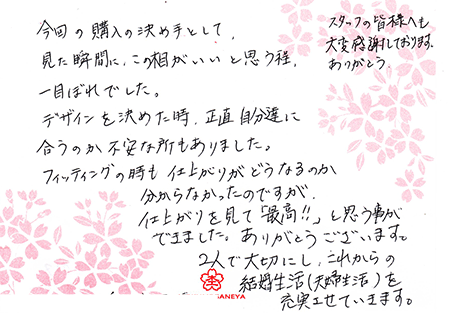 今回の購入の決め手として、
見た瞬間に、この指がいいと思う程、
一目ぼれでした。
デザインを決めた時、正直自分達に
合うのか不安な所もありました。
フィッティングの時も仕上がりがどうなるのか
分からなかったのですが、
仕上がりを見て「最高!!」と思う事が
できました。ありがとうございます。
2人で大切にし、これからの
結婚生活(夫婦生活)を
充実させていきます。
スタッフの皆様へも
大変感謝しております。
ありがとう。
GANEYA